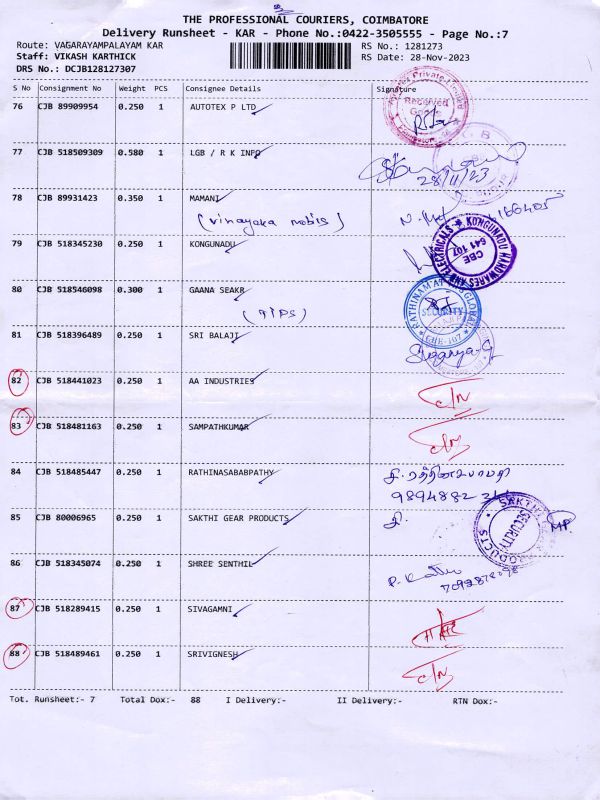 THE PROFESSIONAL COURIERS, COIMBATORE
Delivery Runsheet - KAR - Phone No.:0422-3505555 - Page No.:7
Route: VAGARAYAMPALAYAM KAR RS No.: 1281273
Staff: VIKASH KARTHICK RS Date: 28-Nov-2023
DRS No.: DCJB128127307
S No Consignment No Weight PCS Consignee Details Signature
76 CJB 89909954 0.250 1 AUTOTEX P LTD
Received
77 CJB 518509309 0.580 1 LGB / R K INFO
28/11/23
78 CJB 89931423 0.350 1 MAMANI
(Vinayaka mobis)
79 CJB 518345230 0.250 1 KONGUNADU
KONGUNADU HARDWARES AND ELECTRICALS
CBE
641 107
80 CJB 518546098 0.300 1 GAANA SEAKR
SECURITY
81 CJB 518396489 0.250 1 SRI BALAJI
82 CJB 518441023 0.250 1 AA INDUSTRIES
83 CJB 518481163 0.250 1 SAMPATHKUMAR
84 CJB 518485447 0.250 1 RATHINASABABPATHY
தி. ரத்தினசபாபதி
9894882
85 CJB 80006965 0.250 1 SAKTHI GEAR PRODUCTS
தி.
SAKTHI GEAR PRODUCTS
SECURITY
86 CJB 518345074 0.250 1 SHREE SENTHIL
87 CJB 518289415 0.250 1 SIVAGAMNI
88 CJB 518489461 0.250 1 SRIVIGNESH
Tot. Runsheet:- 7 Total Dox:- 88 I Delivery:- II Delivery:- RTN Dox:-